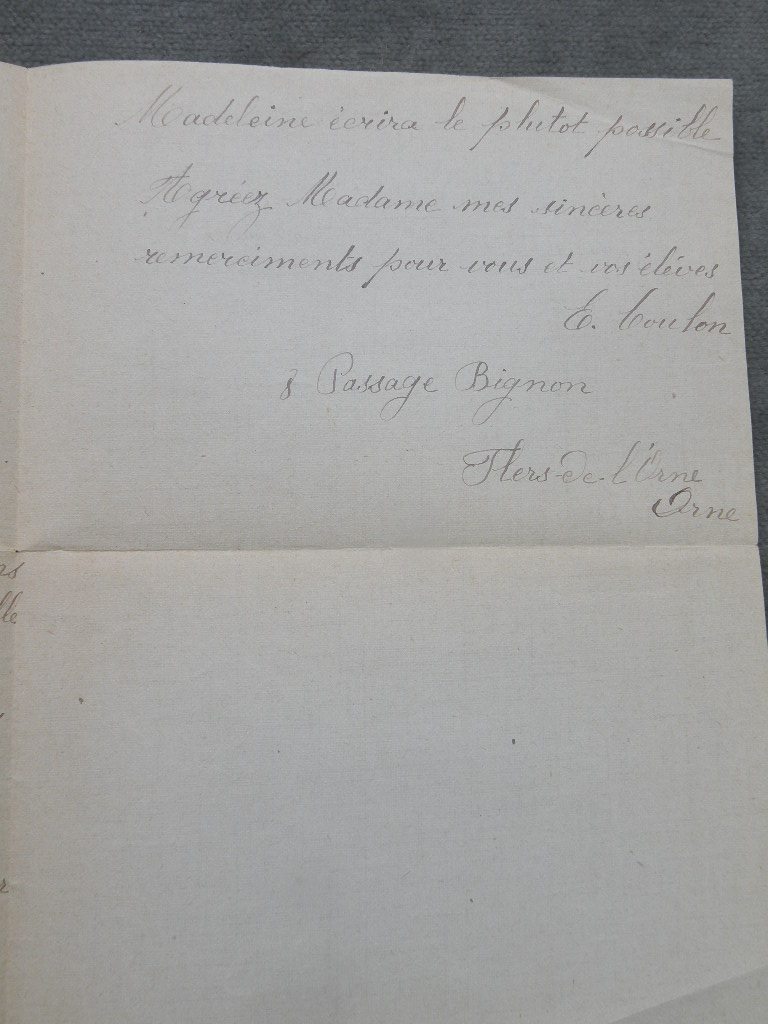 Madeleine écrira le plutot possible
Agréez Madame mes sincères
remerciments pour vous et vos élèves
E. Coulon
8 Passage Bignon
Flers-de-l'Orne
Orne